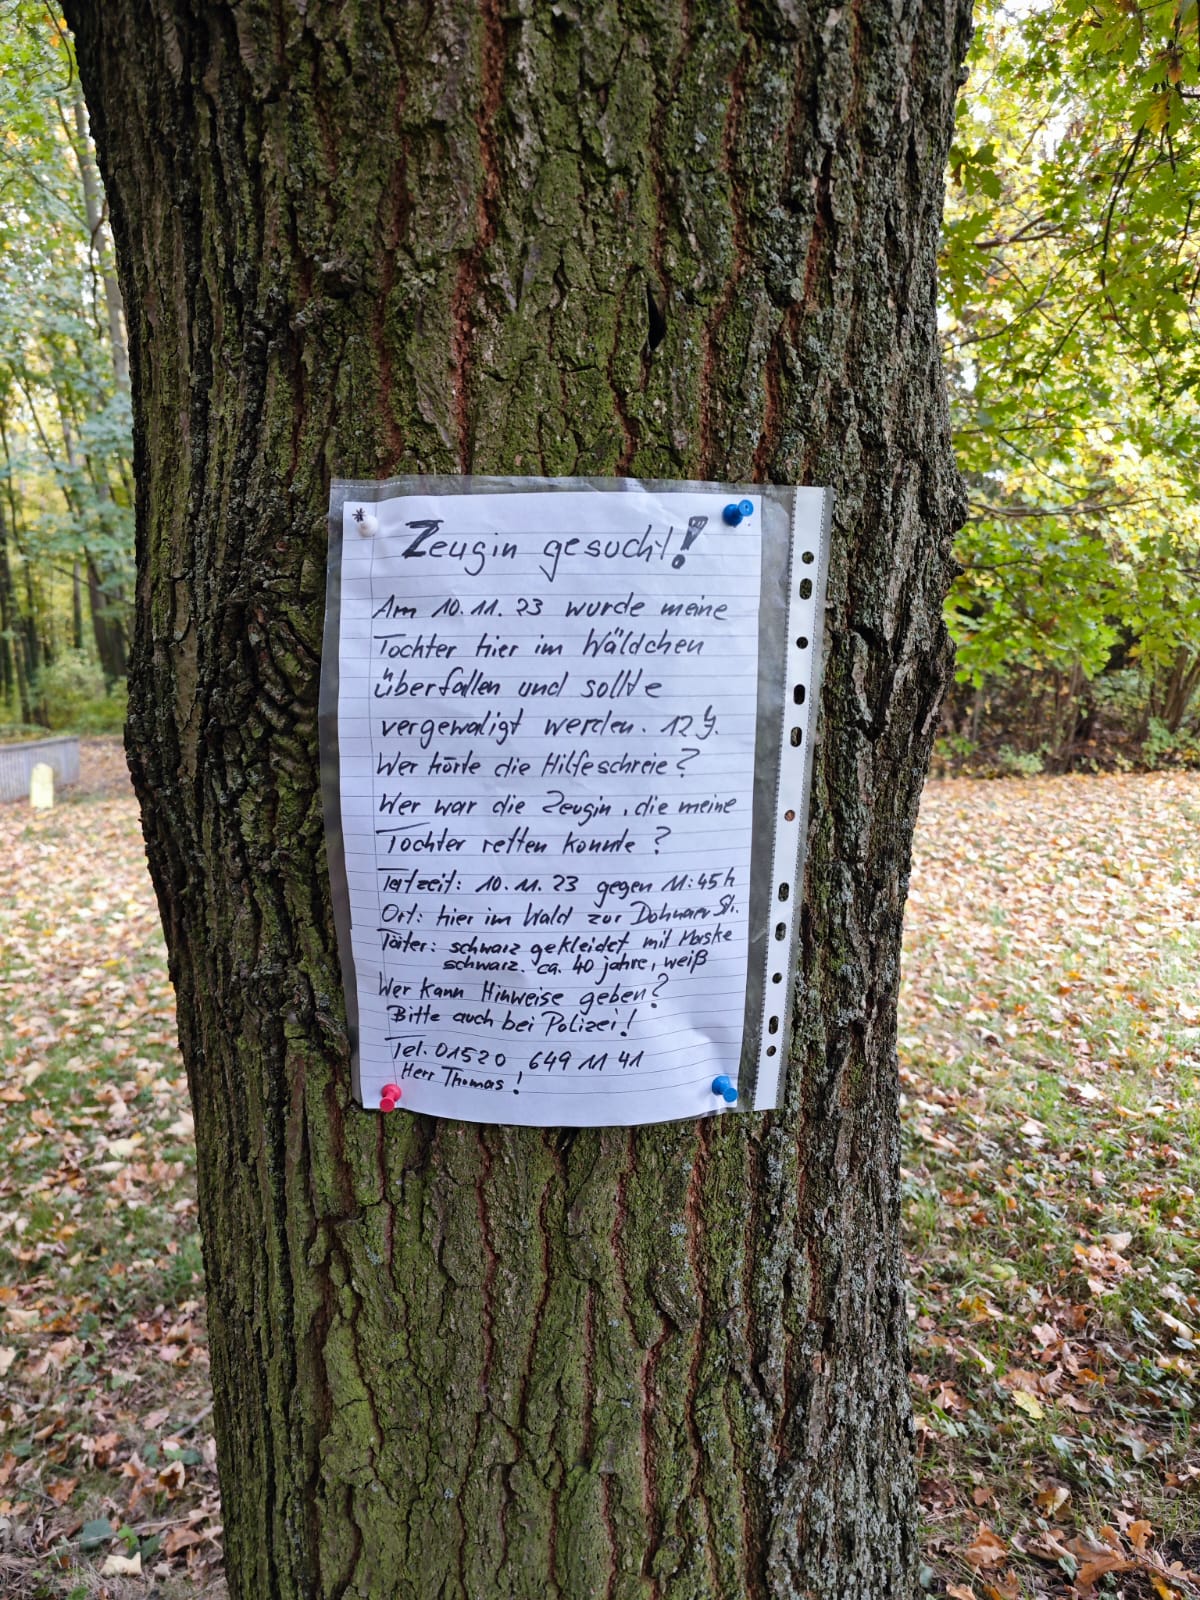 Zeugin gesucht!
Am 10.11.23 wurde meine
Tochter hier im Wäldchen
überfallen und sollte
vergewaltigt werden. 12 J.
Wer hörte die Hilfeschreie?
Wer war die Zeugin, die meine
Tochter retten konnte?
Tatzeit: 10.11.23 gegen 11:45h
Ort: hier im Wald zur Dohnaer Str.
Täter: schwarz gekleidet mit Maske
schwarz. ca. 40 jahre, weiß
Wer kann Hinweise geben?
Bitte auch bei Polizei!
Tel. 01520 649 11 41
Herr Thomas!